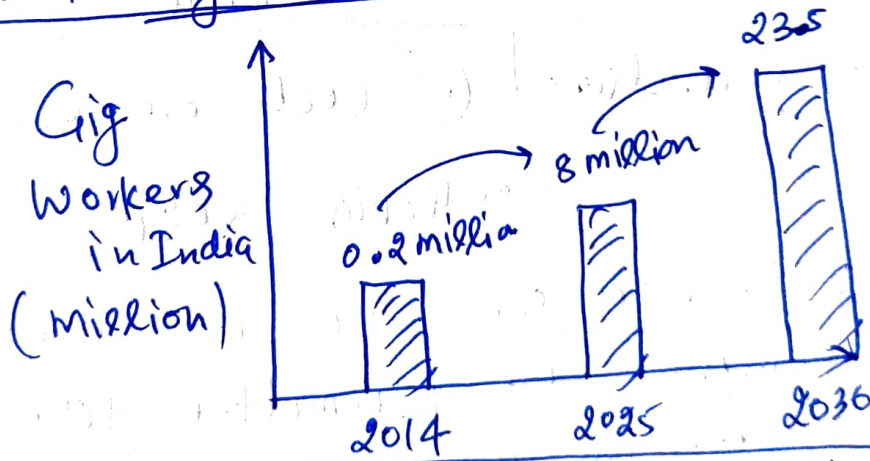 23.5
Gig
Workers
in India
(million)
0.2 million
8 million
2014
2025
2030